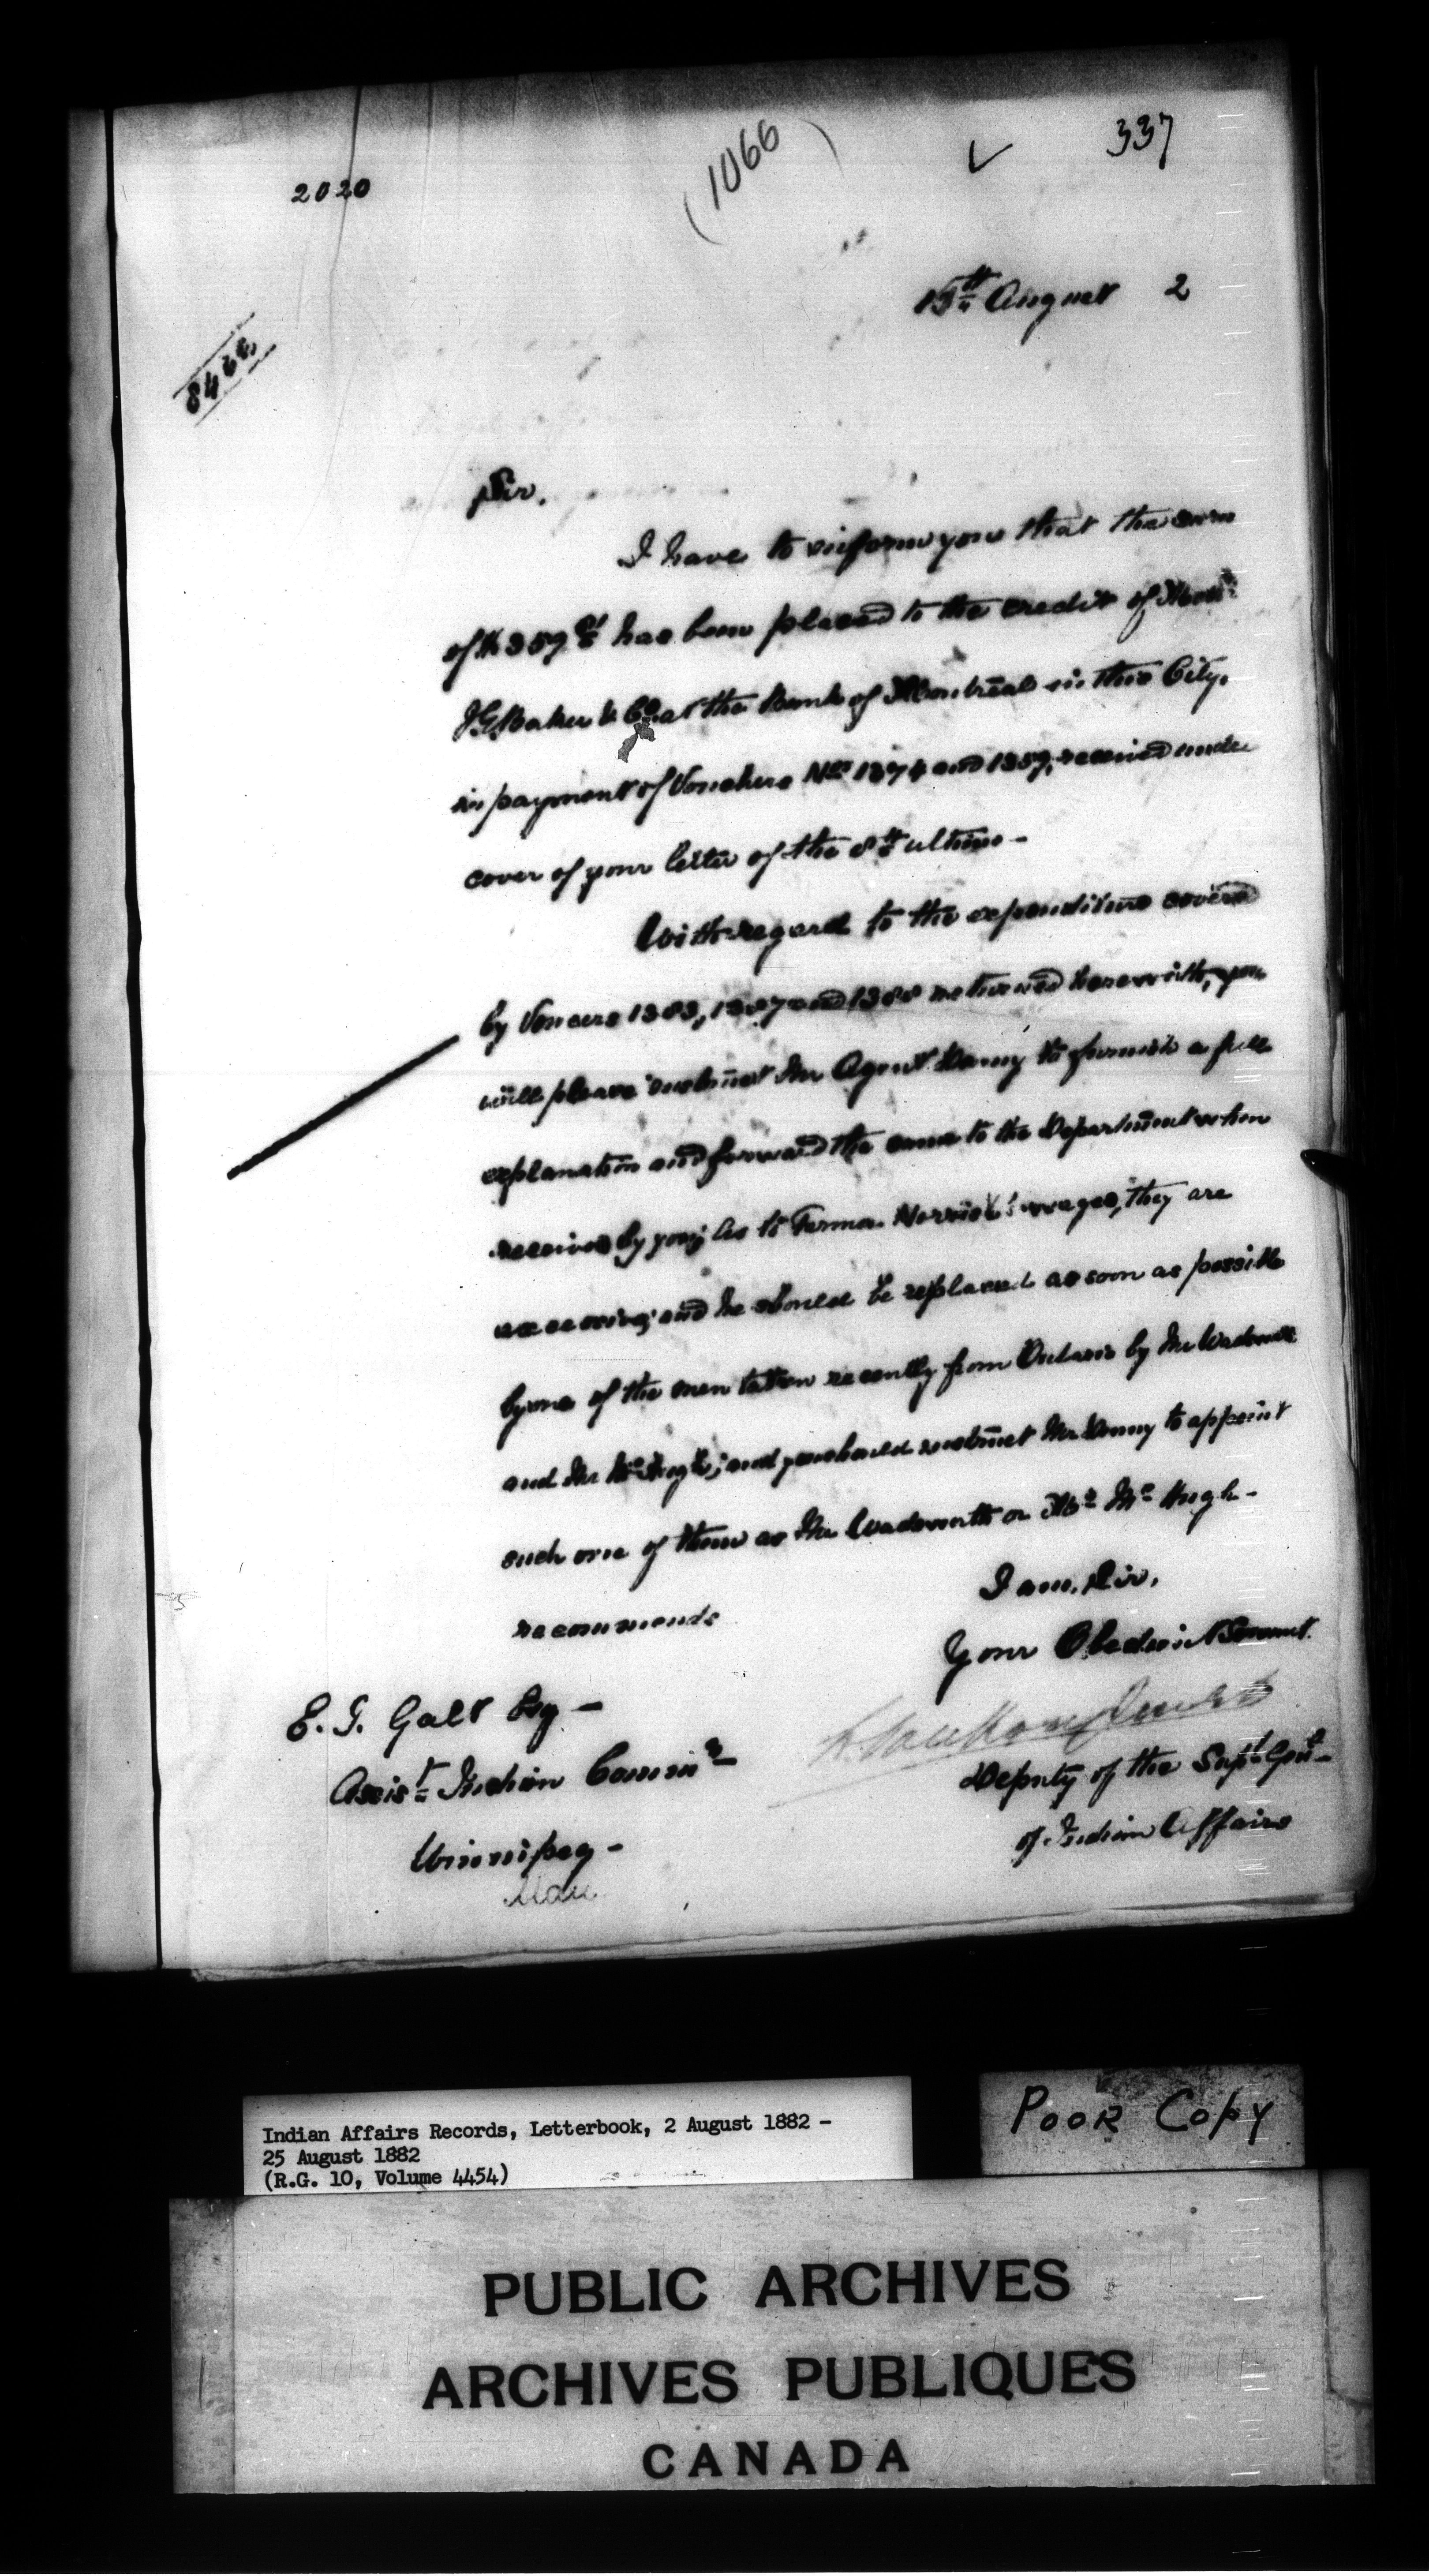 337
(1066)
2020
15th August 2
Sir.
I have to inform you that the sum
of $359 has been placed to the credit of Messrs
J.G. Baker & Co at the Bank of Montreal in this City,
in payment of Vouchers Nos 1374 and 1359, received under
cover of your letter of the 8th ultimo -
With regard to the expenditure covered
by Voucers 1383, 1387 and 1388 returned herewith, you
will please instruct Mr Agent Denny to furnish a full
explanation and forward the same to the Department when
received by you; As to Farmer Norrish's wages, they are
excessive; and he should be replaced as soon as possible
by one of the men taken recently from Ontario by Mr Wadsworth
and Mr McHugh; and you should instruct Mr Denny to appoint
such one of them as Mr Wadsworth or Mr Mc Hugh -
recommends
I am, Sir,
Your Obedient Servant.
L. VanKoughnet
Deputy of the Supt Genl -
of Indian Affairs
E. T. Galt Esq -
Assist Indian Commr -
Winnipeg -
Man
Indian Affairs Records, Letterbook, 2 August 1882 -
25 August 1882
(R.G. 10, Volume 4454)
POOR COPY
PUBLIC ARCHIVES
ARCHIVES PUBLIQUES
CANADA